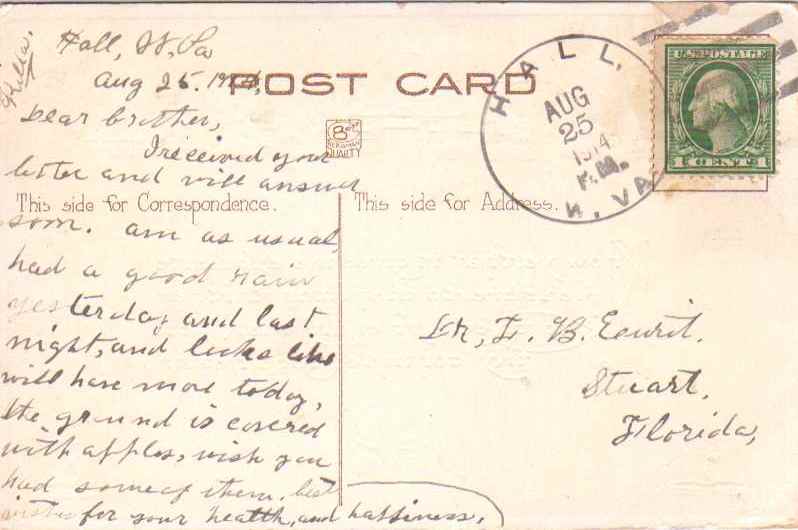 Hall, W, Va
Aug 25. 1914,
Dear brother,
I received your
letter and will answer
soon. am as usual,
had a good rain
yesterday and last
night, and looks like
will have more today,
the ground is covered
with apples, wish you
had some of them, best
wishes for your health, and happiness.
POST CARD
QUALITY
This side for Correspondence.
This side for Address.
HALL,
AUG
25
1914
P.M.
W. VA
U.S. POSTAGE
1 CENTS 1
B.
Stuart,
Florida,